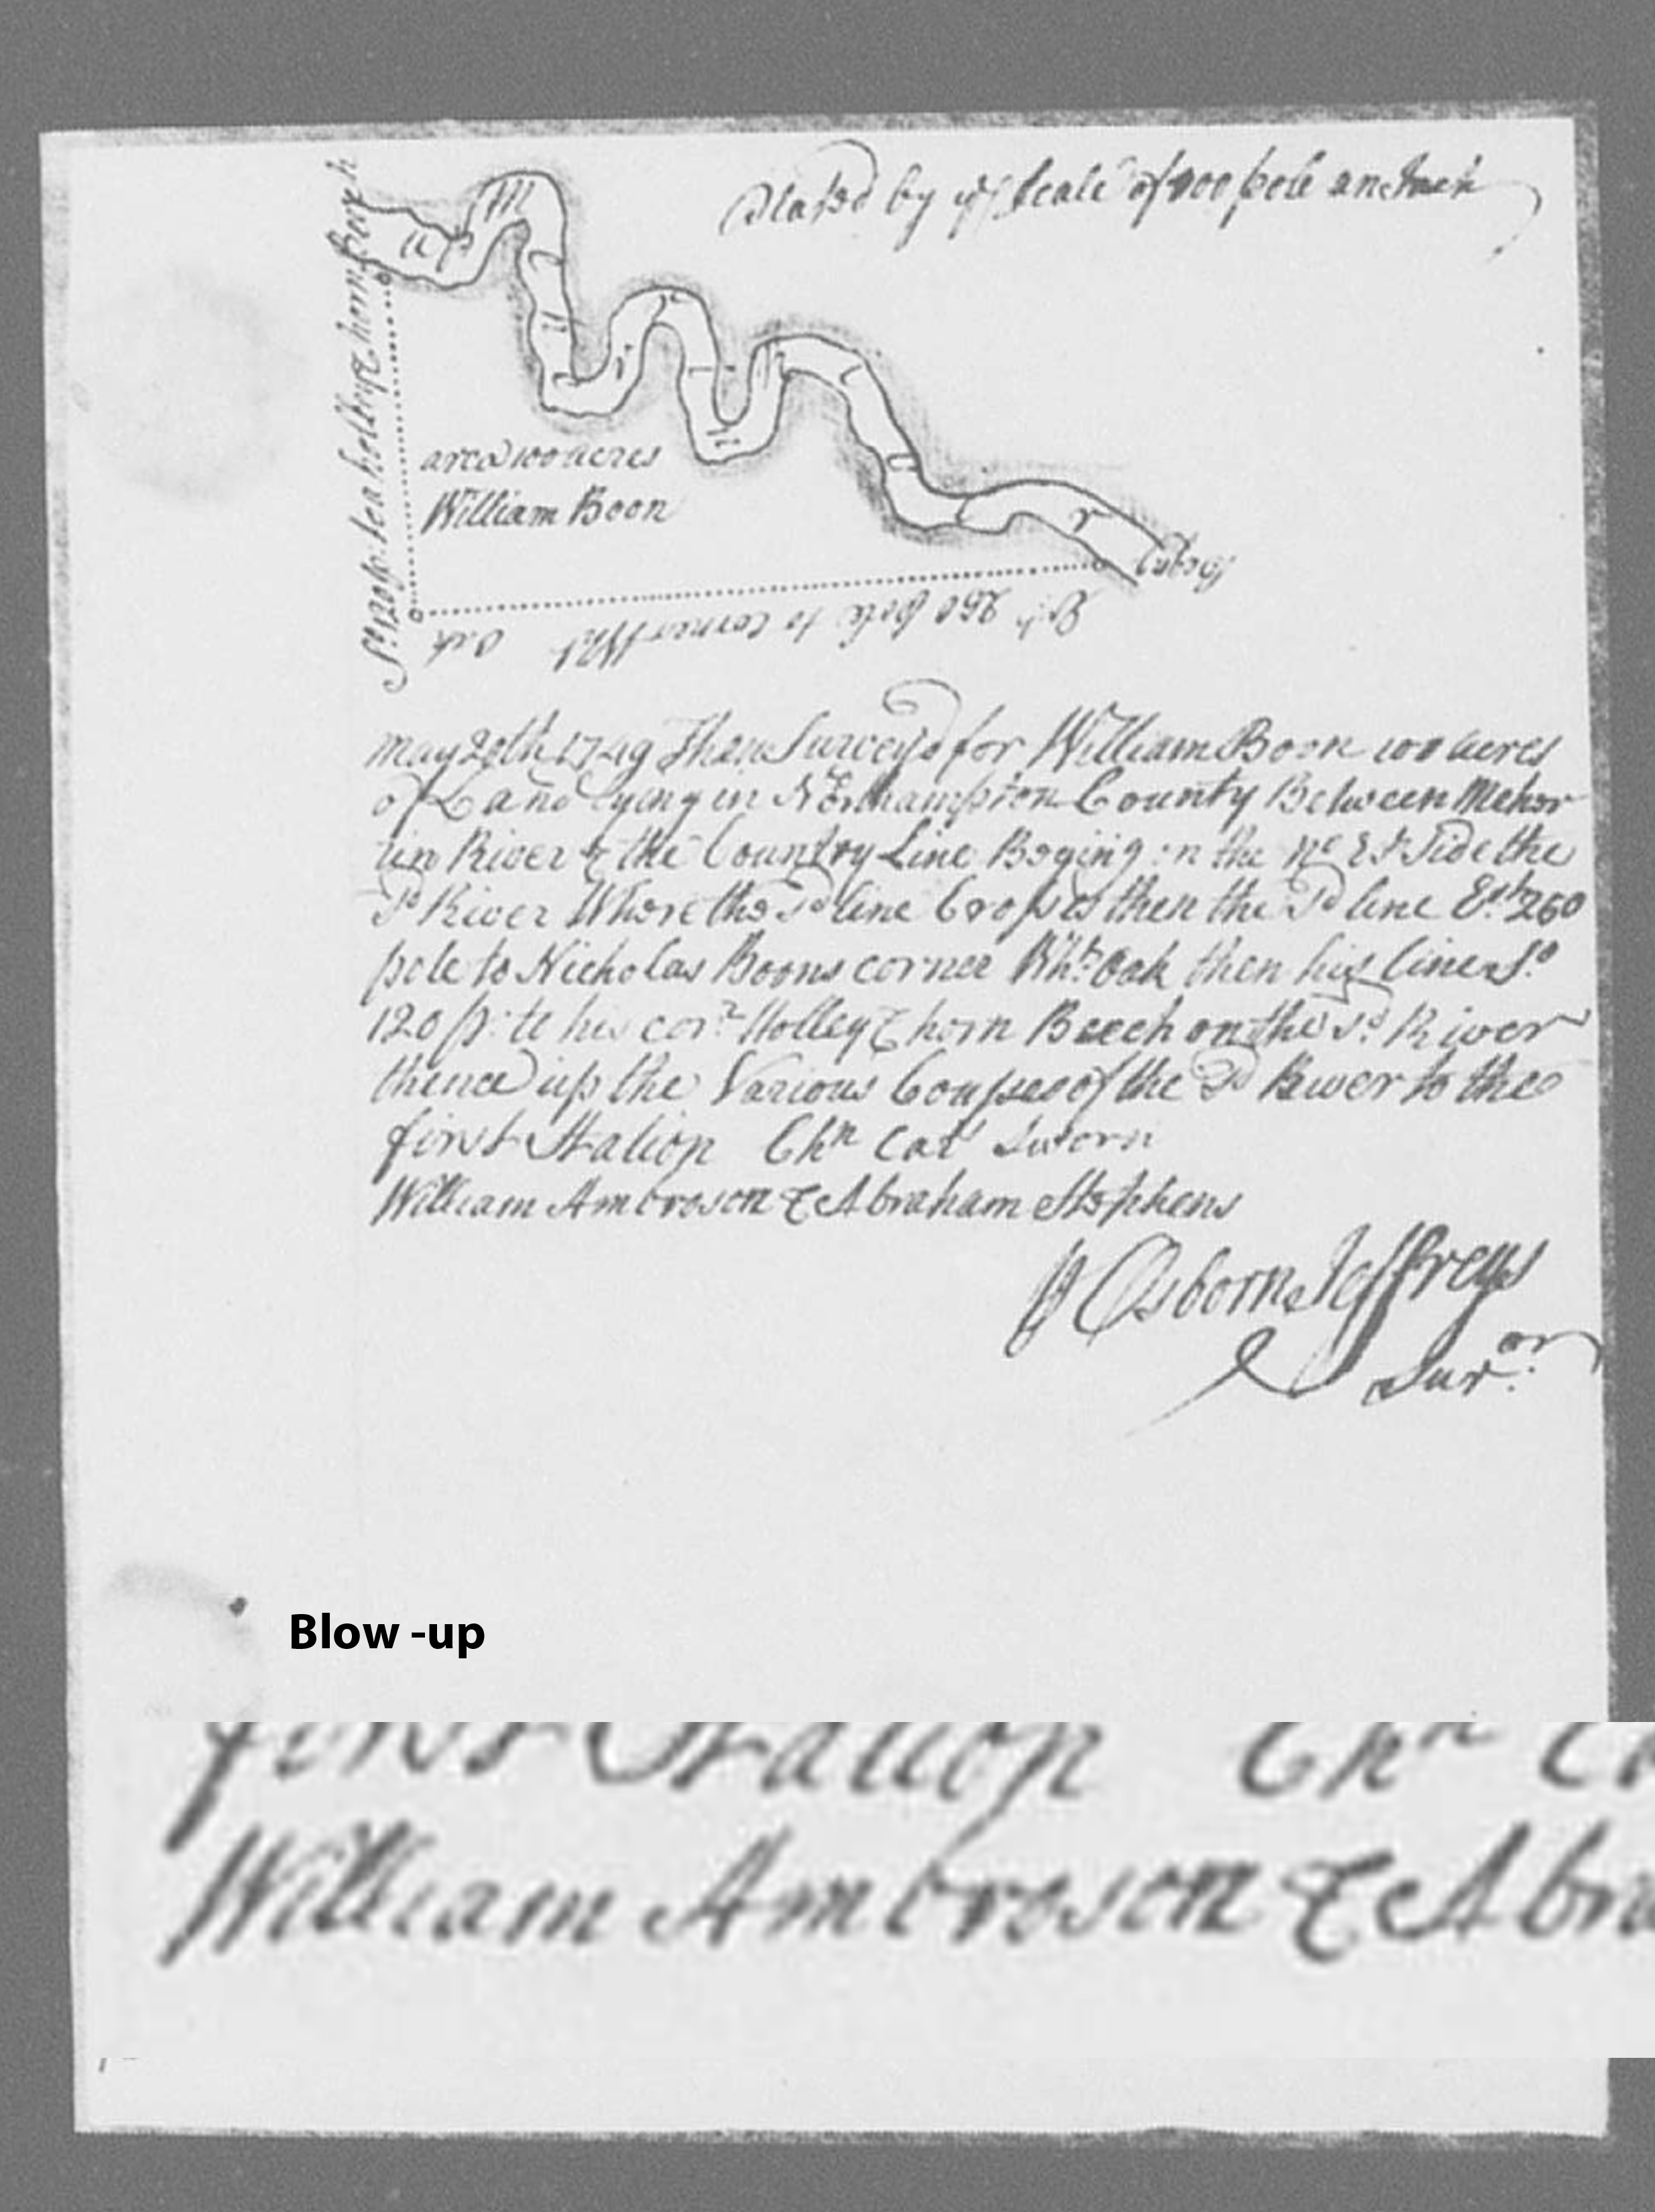 Plated by ye Scale of 100 pole an Inch
Meherrin River
So. 120 po. to a holley & horn Beech
area 100 acres
William Boon
Begins
Est 260 pole to corner Wht Oak
may 20th 1749 Then Surveyd for William Boon 100 acres
of Land Lying in Northampton County Between Meher
rin River & the Country Line Beging on the No Est Side the
Sd River Where the Sd line Crosses then the Sd line Est 260
pole to Nicholas Boons corner Wht. Oak then his line So
120 p: to his corr Holley & horn Beech on the sd. River
thence up the Various Courses of the Sd River to the
first Station Chn Car Sworn
William Ambroson & Abraham Stephens
P Osborn Jeffreys
Suror.
Blow -up
first Station Chn Ca
William Ambroson & Abra